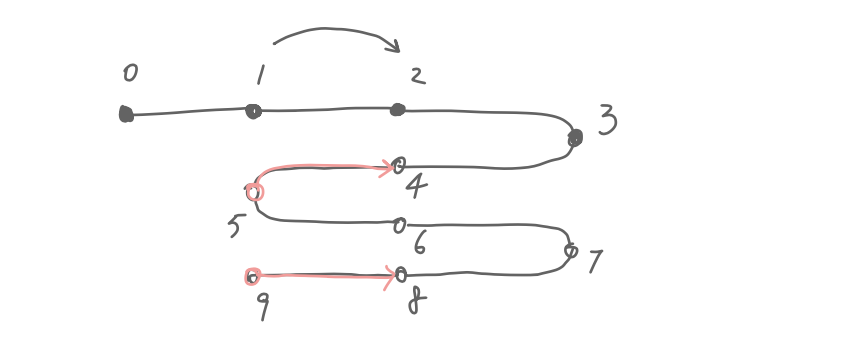 0 1 2
3
4
5
6
7
9 8